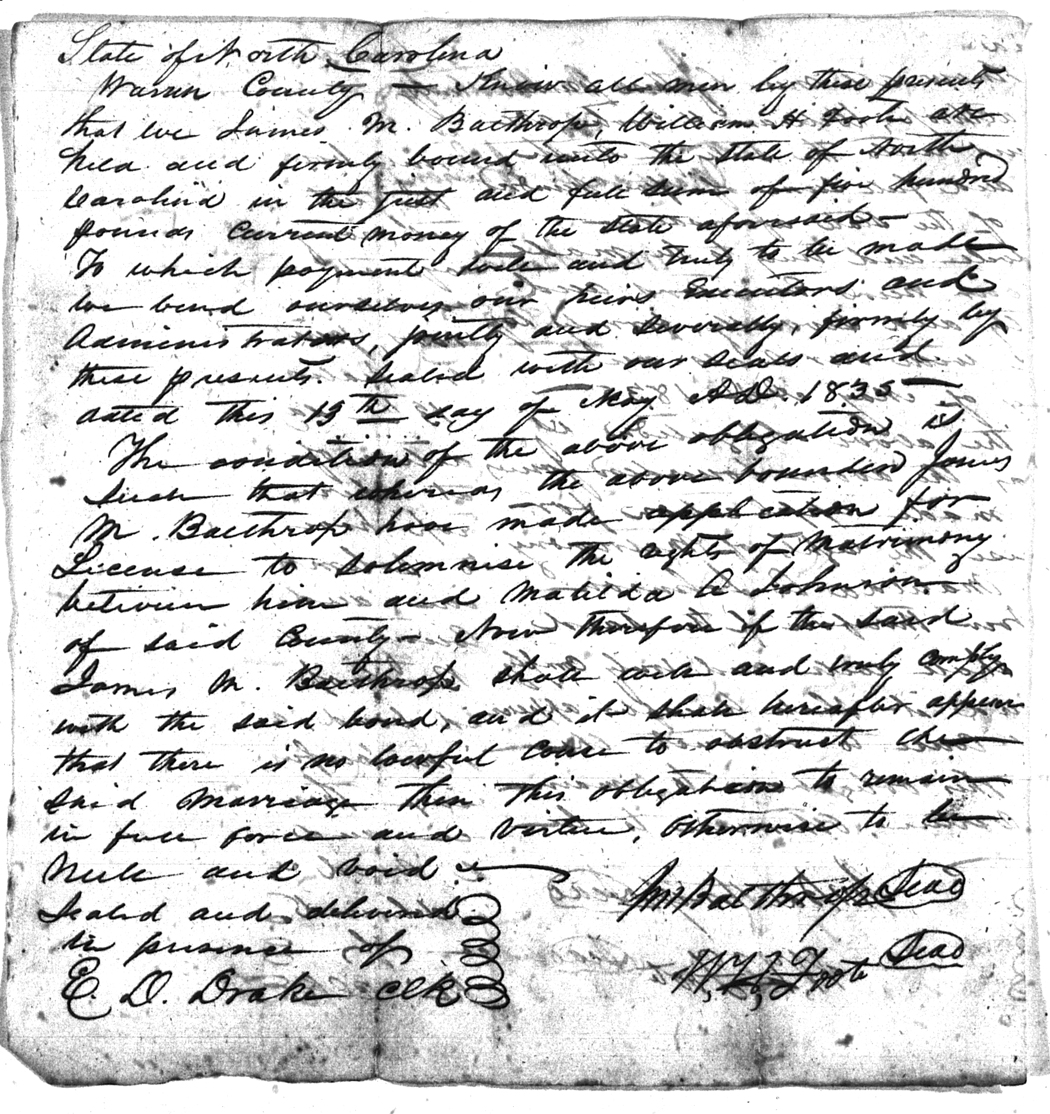 State of North Carolina
Warren County — Know all men by these presents
that we James M. Baethrop, William H Foote are
held and firmly bound unto the State of North
Carolina in the just and full sum of five hundred
pounds current money of the State aforesaid –
To which payment well and truly to be made
we bind ourselves our heirs Executors and
Administrators, jointly and severally, firmly by
these presents. Sealed with our seals and
dated this 13th day of May A.D. 1835 —
The condition of the above obligation is
such that whereas the above bounden James
M. Baethrop have made application for
License to solemnise the rights of Matrimony
between him and Matilda A Johnson
of said County – Now therefore if the said
James M. Baethrop shall well and truly comply
with the said bond, and it shall hereafter appear
that there is no lawful cause to obstruct the
said marriage then this obligation to remain
in full force and virtue, otherwise to be
Null and void.
Sealed and delivered
in presence of
E. D. Drake Clk
Jas M Baethrop Seal
W. H. Foote Seal